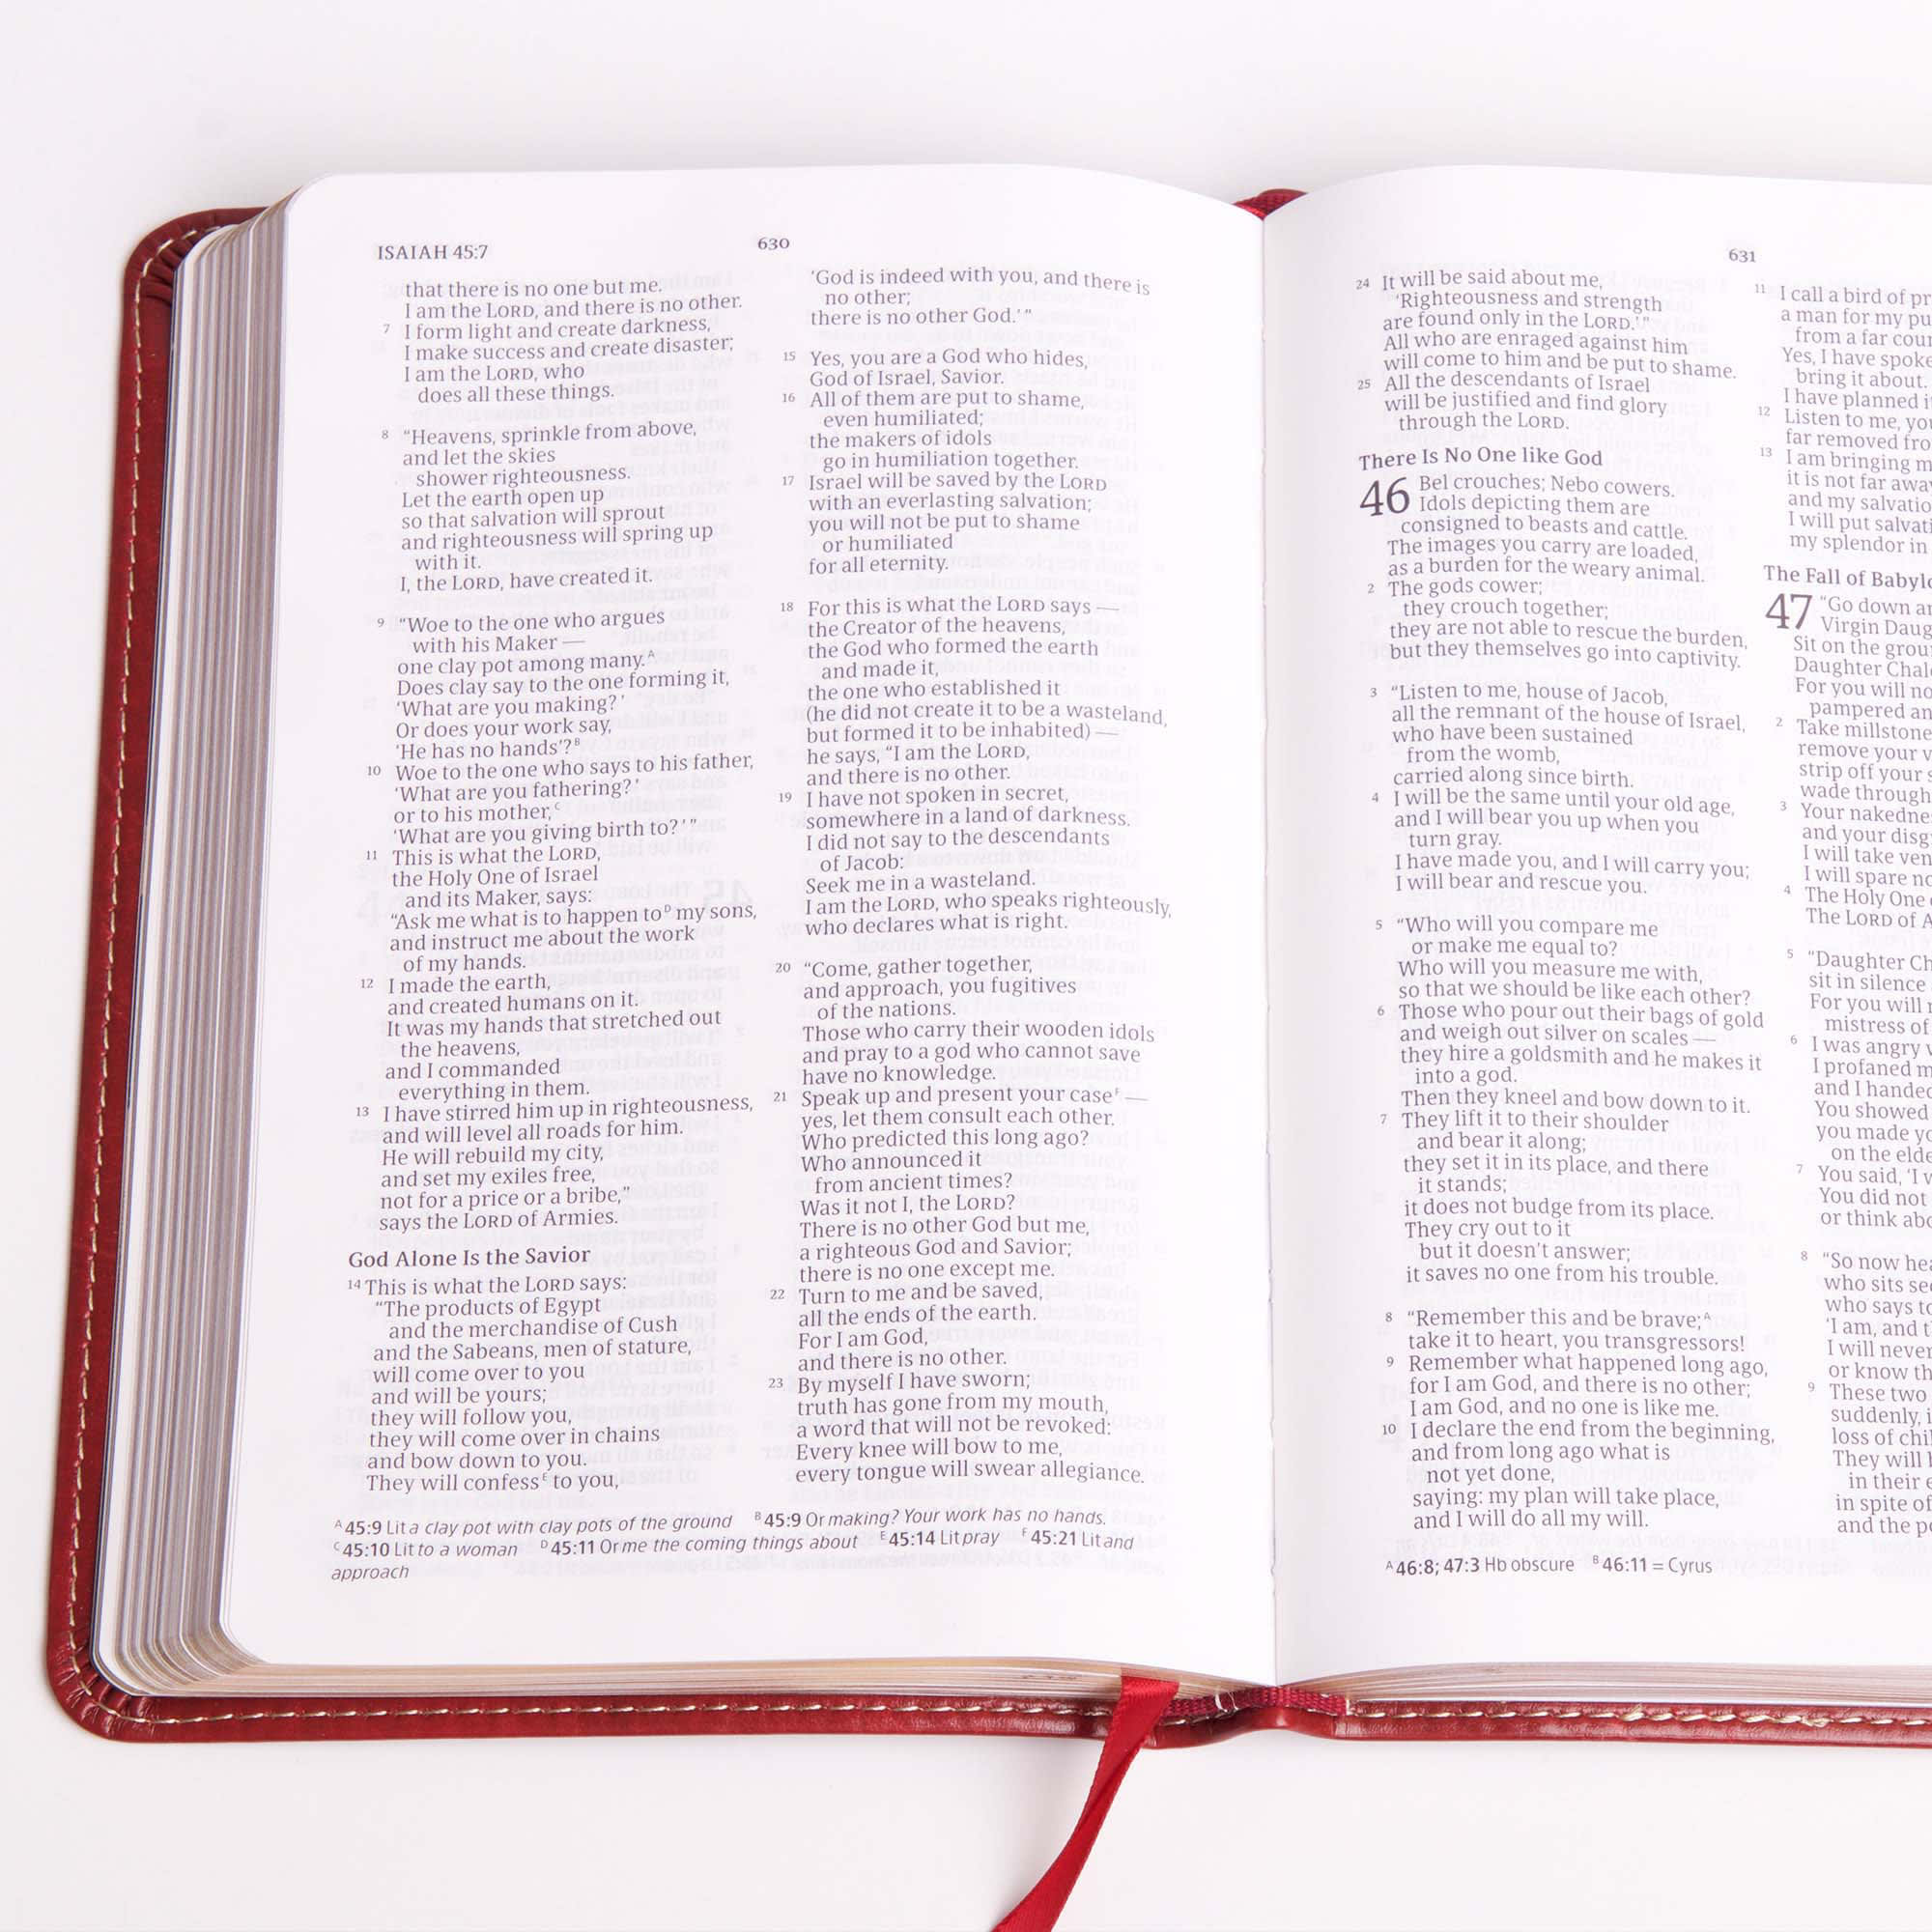 ISAIAH 45:7
630
that there is no one but me.
I am the LORD, and there is no other.
7 I form light and create darkness,
I make success and create disaster;
I am the LORD, who
does all these things.
8 “Heavens, sprinkle from above,
and let the skies
shower righteousness.
Let the earth open up
so that salvation will sprout
and righteousness will spring up
with it.
I, the LORD, have created it.
9 “Woe to the one who argues
with his Maker —
one clay pot among many.A
Does clay say to the one forming it,
‘What are you making?’
Or does your work say,
‘He has no hands’?B
10 Woe to the one who says to his father,
‘What are you fathering?’
or to his mother,C
‘What are you giving birth to?’”
11 This is what the LORD,
the Holy One of Israel
and its Maker, says:
“Ask me what is to happen toD my sons,
and instruct me about the work
of my hands.
12 I made the earth,
and created humans on it.
It was my hands that stretched out
the heavens,
and I commanded
everything in them.
13 I have stirred him up in righteousness,
and will level all roads for him.
He will rebuild my city,
and set my exiles free,
not for a price or a bribe,”
says the LORD of Armies.
God Alone Is the Savior
14 This is what the LORD says:
“The products of Egypt
and the merchandise of Cush
and the Sabeans, men of stature,
will come over to you
and will be yours;
they will follow you,
they will come over in chains
and bow down to you.
They will confessE to you,
‘God is indeed with you, and there is
no other;
there is no other God.’”
15 Yes, you are a God who hides,
God of Israel, Savior.
16 All of them are put to shame,
even humiliated;
the makers of idols
go in humiliation together.
17 Israel will be saved by the LORD
with an everlasting salvation;
you will not be put to shame
or humiliated
for all eternity.
18 For this is what the LORD says —
the Creator of the heavens,
the God who formed the earth
and made it,
the one who established it
(he did not create it to be a wasteland,
but formed it to be inhabited) —
he says, “I am the LORD,
and there is no other.
19 I have not spoken in secret,
somewhere in a land of darkness.
I did not say to the descendants
of Jacob:
Seek me in a wasteland.
I am the LORD, who speaks righteously,
who declares what is right.
20 “Come, gather together,
and approach, you fugitives
of the nations.
Those who carry their wooden idols
and pray to a god who cannot save
have no knowledge.
21 Speak up and present your caseF —
yes, let them consult each other.
Who predicted this long ago?
Who announced it
from ancient times?
Was it not I, the LORD?
There is no other God but me,
a righteous God and Savior;
there is no one except me.
22 Turn to me and be saved,
all the ends of the earth.
For I am God,
and there is no other.
23 By myself I have sworn;
truth has gone from my mouth,
a word that will not be revoked:
Every knee will bow to me,
every tongue will swear allegiance.
A 45:9 Lit a clay pot with clay pots of the ground B 45:9 Or making? Your work has no hands.
C 45:10 Lit to a woman D 45:11 Or me the coming things about E 45:14 Lit pray F 45:21 Lit and
approach
631
24 It will be said about me,
‘Righteousness and strength
are found only in the LORD.’”
All who are enraged against him
will come to him and be put to shame.
25 All the descendants of Israel
will be justified and find glory
through the LORD.
There Is No One like God
46 Bel crouches; Nebo cowers.
Idols depicting them are
consigned to beasts and cattle.
The images you carry are loaded,
as a burden for the weary animal.
2 The gods cower;
they crouch together;
they are not able to rescue the burden,
but they themselves go into captivity.
3 “Listen to me, house of Jacob,
all the remnant of the house of Israel,
who have been sustained
from the womb,
carried along since birth.
4 I will be the same until your old age,
and I will bear you up when you
turn gray.
I have made you, and I will carry you;
I will bear and rescue you.
5 “Who will you compare me
or make me equal to?
Who will you measure me with,
so that we should be like each other?
6 Those who pour out their bags of gold
and weigh out silver on scales —
they hire a goldsmith and he makes it
into a god.
Then they kneel and bow down to it.
7 They lift it to their shoulder
and bear it along;
they set it in its place, and there
it stands;
it does not budge from its place.
They cry out to it
but it doesn't answer;
it saves no one from his trouble.
8 “Remember this and be brave;A
take it to heart, you transgressors!
9 Remember what happened long ago,
for I am God, and there is no other;
I am God, and no one is like me.
10 I declare the end from the beginning,
and from long ago what is
not yet done,
saying: my plan will take place,
and I will do all my will.
A 46:8; 47:3 Hb obscure B 46:11 = Cyrus
11 I call a bird of
a man for my
from a far
Yes, I have
bring it about.
I have planned
12 Listen to me,
far removed
13 I am bringing
it is not far
and my
I will put
my splendor in
The Fall of
47 “Go down
Virgin
Sit on the
Daughter
For you will
pampered
2 Take
remove your
strip off your
wade through
3 Your
and your
I will take
I will spare
4 The Holy One
The LORD of
5 “Daughter
sit in silence
For you will
mistress of
6 I was angry
I profaned
and I
You showed
you made
on the
7 You said, ‘I
You did not
or think
8 “So now
who sits
who says
‘I am, and
I will never
or know
9 These two
suddenly,
loss of
They will
in their
in spite of
and the